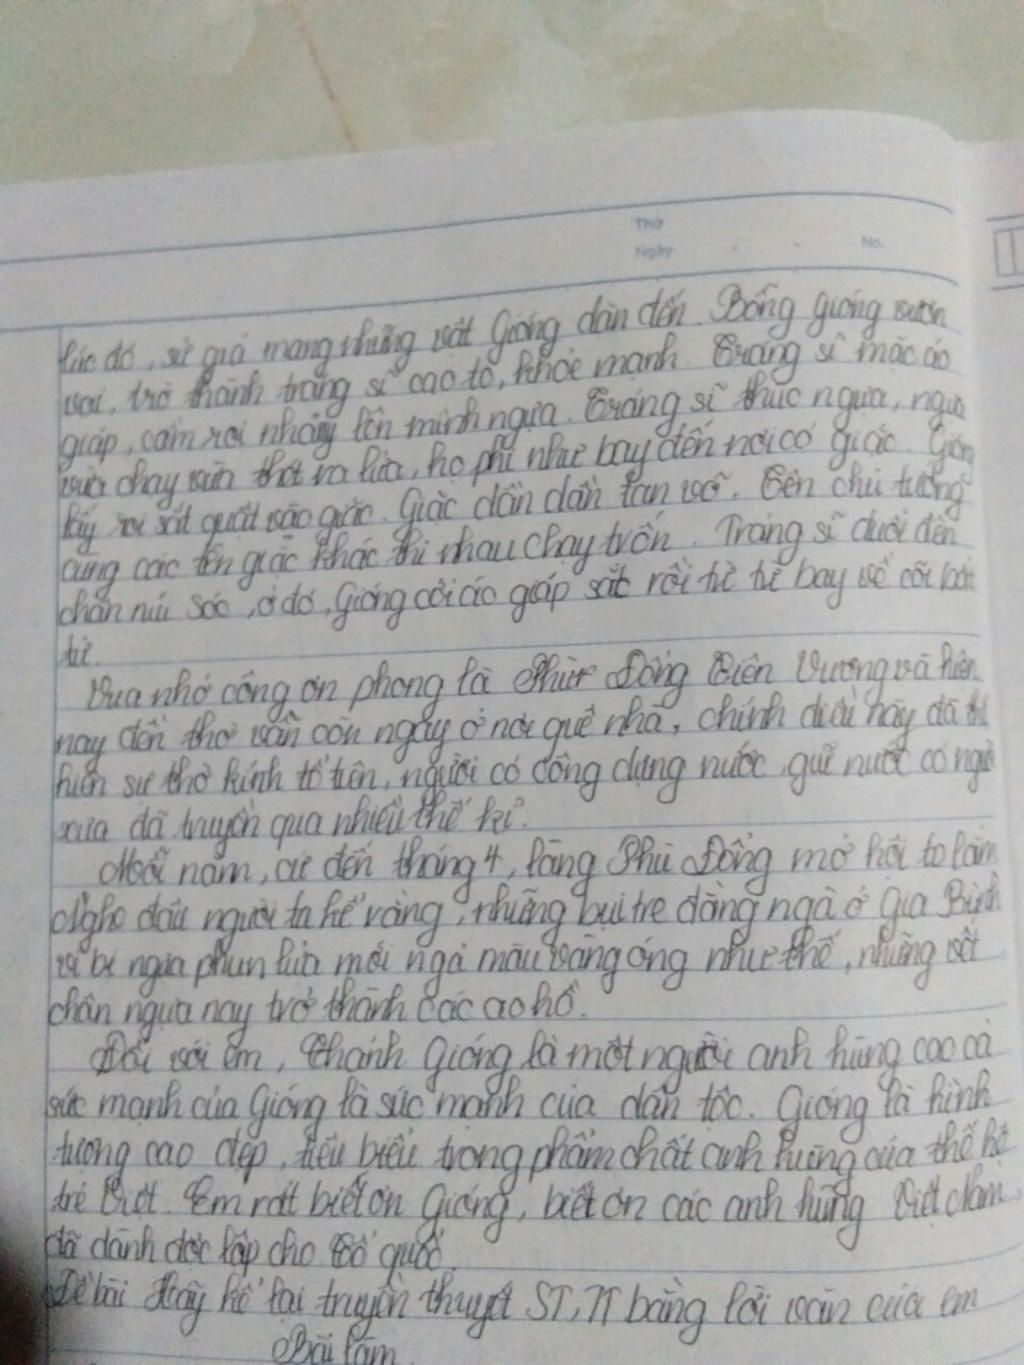 Thứ
Ngày No.
lúc đó, sứ giả mang những vật Gióng dặn đến. Bỗng Gióng vươn
vai, trở thành tráng sĩ cao to, khỏe mạnh. Tráng sĩ mặc áo
giáp, cầm roi nhảy lên mình ngựa. Tráng sĩ thúc ngựa, ngựa
vừa chạy vừa thét ra lửa, họ phi như bay đến nơi có giặc. Gióng
lấy roi sắt quất vào giặc. Giặc dần dần tan vỡ. Tên chủ tướng
cùng các tên giặc khác thi nhau chạy trốn. Tráng sĩ đuổi đến
chân núi Sóc, ở đó, Gióng cởi áo giáp sắt rồi từ từ bay về cõi bất
tử.
Vua nhớ công ơn phong là Phù Đổng Thiên Vương và hiện
nay đền thờ vẫn còn ngay ở nơi quê nhà, chính điều này đã thể
hiện sự thờ kính tổ tiên, người có công dựng nước, giữ nước có ngà
xưa đã truyền qua nhiều thế kỉ.
Mỗi năm, cứ đến tháng 4, làng Phù Đổng mở hội to lắm
Nghe đâu người ta kể rằng, những bụi tre đằng ngà ở Gia Bình
vì bị ngựa phun lửa mới ngả màu vàng óng như thế, những vết
chân ngựa nay trở thành các ao hồ.
Đối với em, Thánh Gióng là một người anh hùng cao cả
sức mạnh của Gióng là sức mạnh của dân tộc. Gióng là hình
tượng cao đẹp, tiêu biểu trong phẩm chất anh hùng của thế hệ
trẻ Việt. Em rất biết ơn Gióng, biết ơn các anh hùng Việt Nam
đã dành độc lập cho Tổ quốc.
Đề bài Hãy kể lại truyền thuyết ST, TT bằng lời văn của em
Bài làm